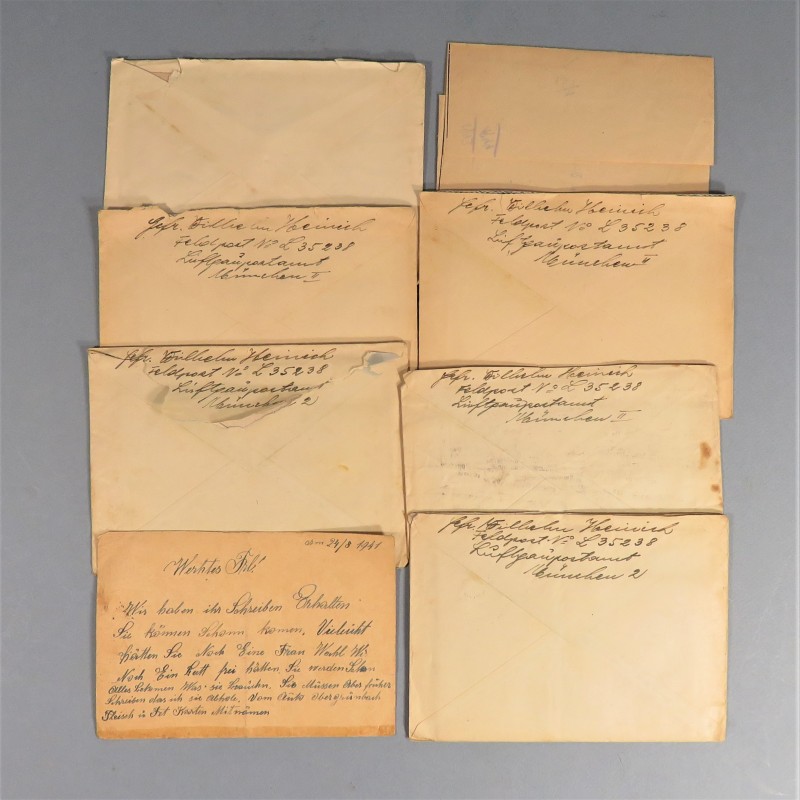 Gefr. Wilhelm Heinrich
Feldpost No L 35238
Luftgaupostamt
München II
Gefr. Wilhelm Heinrich
Feldpost No L 35238
Luftgaupostamt
München II
Gefr. Wilhelm Heinrich
Feldpost No L 35238
Luftgaupostamt
München 2
Gefr. Wilhelm Heinrich
Feldpost No L 35238
Luftgaupostamt
München II
Gefr. Wilhelm Heinrich
Feldpost. No L 35238
Luftgaupostamt
München 2
am 24/3 1941
Wertes Frl!
Wir haben ihr Schreiben Erhalten
Sie können Schonn komen. Vieleicht
hätten Sie Noch Eine Frau Wohl Wir
Noch Ein Bett frei hätten. Sie werden
Alles bekomen Was sie brauchn. Sie Müssen Aber früher
Schreiben das ich sie Abhole. Vom Auto obergrünbach
Fleisch u Fet Karten Mitnämen